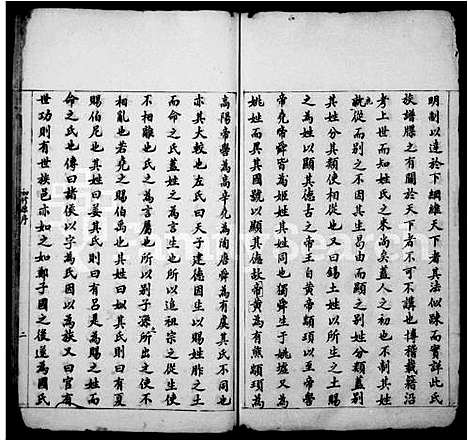 明制以達於下綱維天下者其法似踈而實詳此氏
族譜牒之有關於天下者不可不講也博稽載籍沿
考上世而知姓氏之来尚矣蓋人之初也不制其姓
就從而别之不因其生與其所自出而别之姓分類别
其姓分其類使相從也又曰錫土姓以所生之土賜
之為姓以顯其德古之帝王自黄帝顓頊以至帝嚳
帝堯帝舜皆為姬姓獨舜生于姚墟又為
姚姓而異其國號以顯其德故帝黄為有熊顓頊為
高陽帝嚳為高辛堯為陶唐舜為有虞其氏不同也
亦其大較也左氏曰天子建德因生以賜姓胙之土
而命之氏蓋姓之為言生也所以追祖宗之從生使
不相離也氏之為言屬也所以别子孫所出之使不
相亂也若堯之賜伯禹也其姓曰姒其氏則曰有夏
賜伯尼也其姓曰姜其氏則曰有吕是為賜之姓而
命之氏也傳曰諸侯以字為氏因以為族又曰官有
世功則有世族邑亦如之如鄭子國之後遂為國氏
二